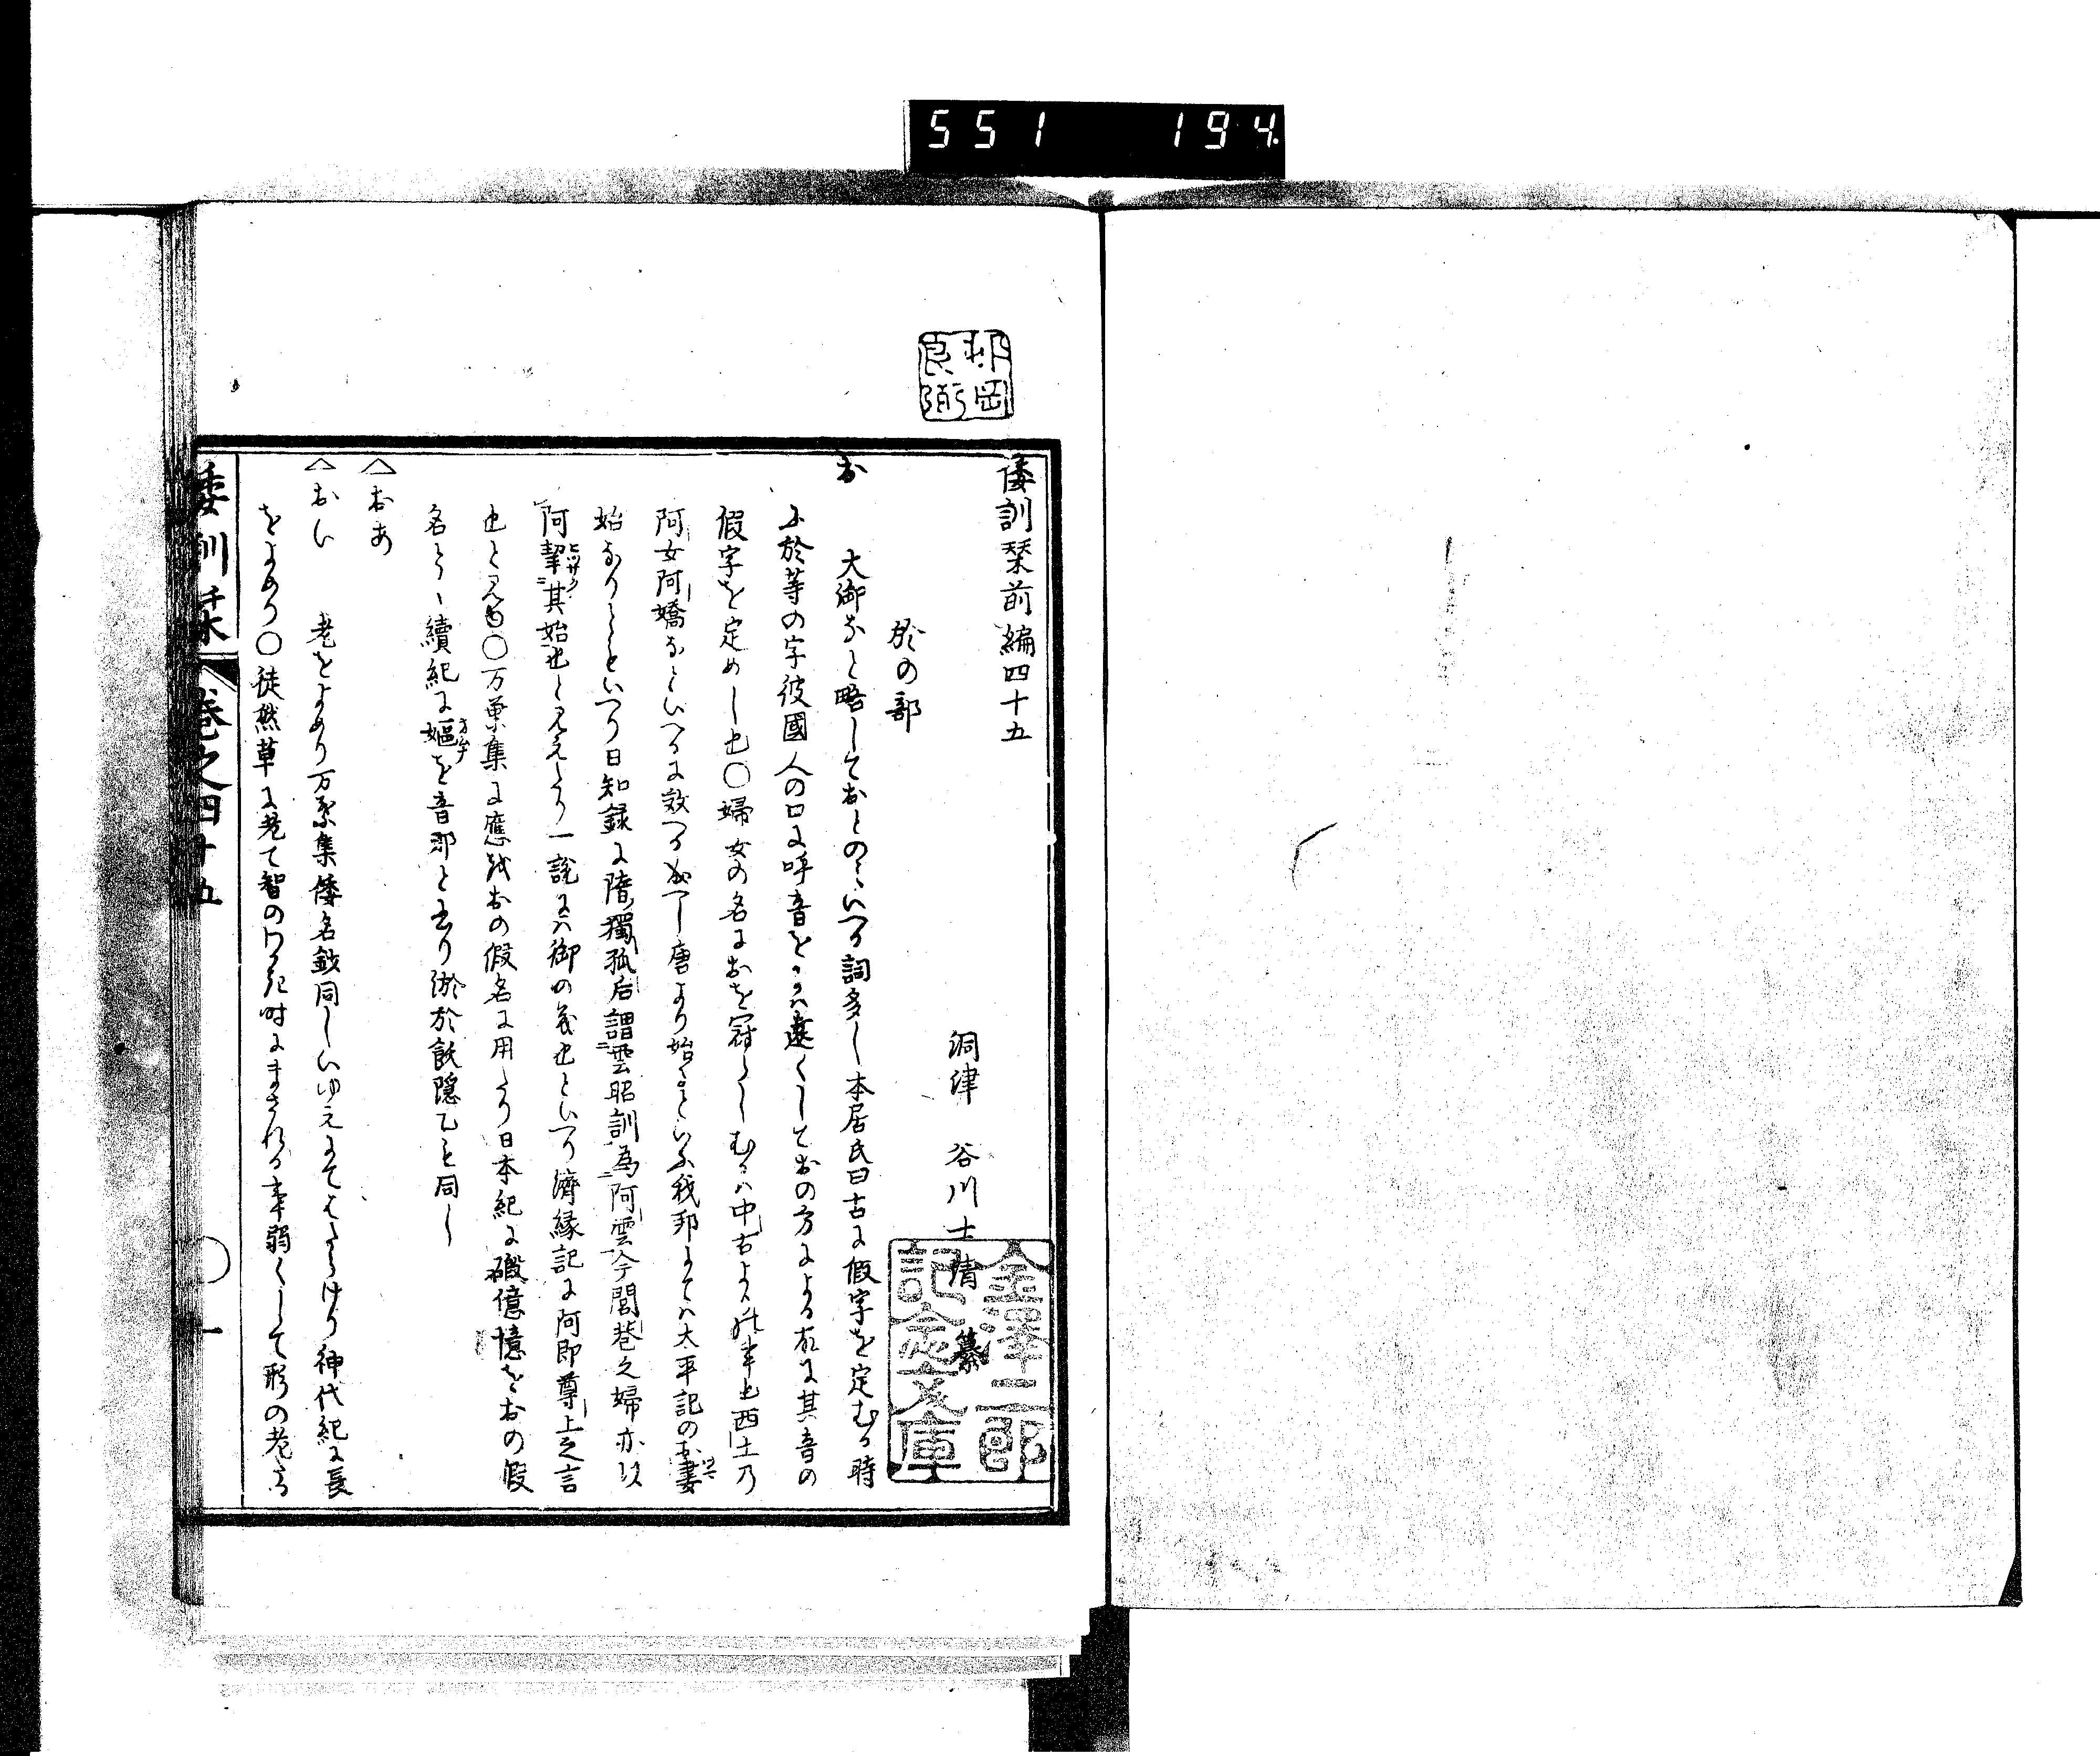 551 194.
邨岡良弼
倭訓栞前編四十五
洞津 谷川士清 纂
金澤二郎記念文庫
於の部
お
大御なと略しておとのミいへる詞多し本居氏曰古に假字を定むる時
に於等の字彼國人の口に呼音をきハ遠くしておの方による故に其音の
假字を定めし也〇婦女の名におを冠らしむるハ中古よりの事也西土乃
阿女阿嬌なといへるに效へる成へし唐より始るといふ我邦にてハ太平記のお妻
始なりともいへり日知録に隋獨孤后謂雲昭訓為阿雲今閭巷之婦亦以
阿挈其始也と見えたり一説にハ御の義也といへり濟縁記に阿即尊上之言
也と見ゆ〇万葉集に應或おの假名に用たり日本紀に磤億憶をおの假
名とす續紀に嫗を音那と書り淤於飫隠乙も同し
△おあ
△おい
老をよめり万葉集倭名鈔同しいゆえにてはたらけり神代紀に長
をよめり〇徒然草に老て智のわかき時にまされる事弱くして形の老たる
倭訓栞 巻之四十五 〇一